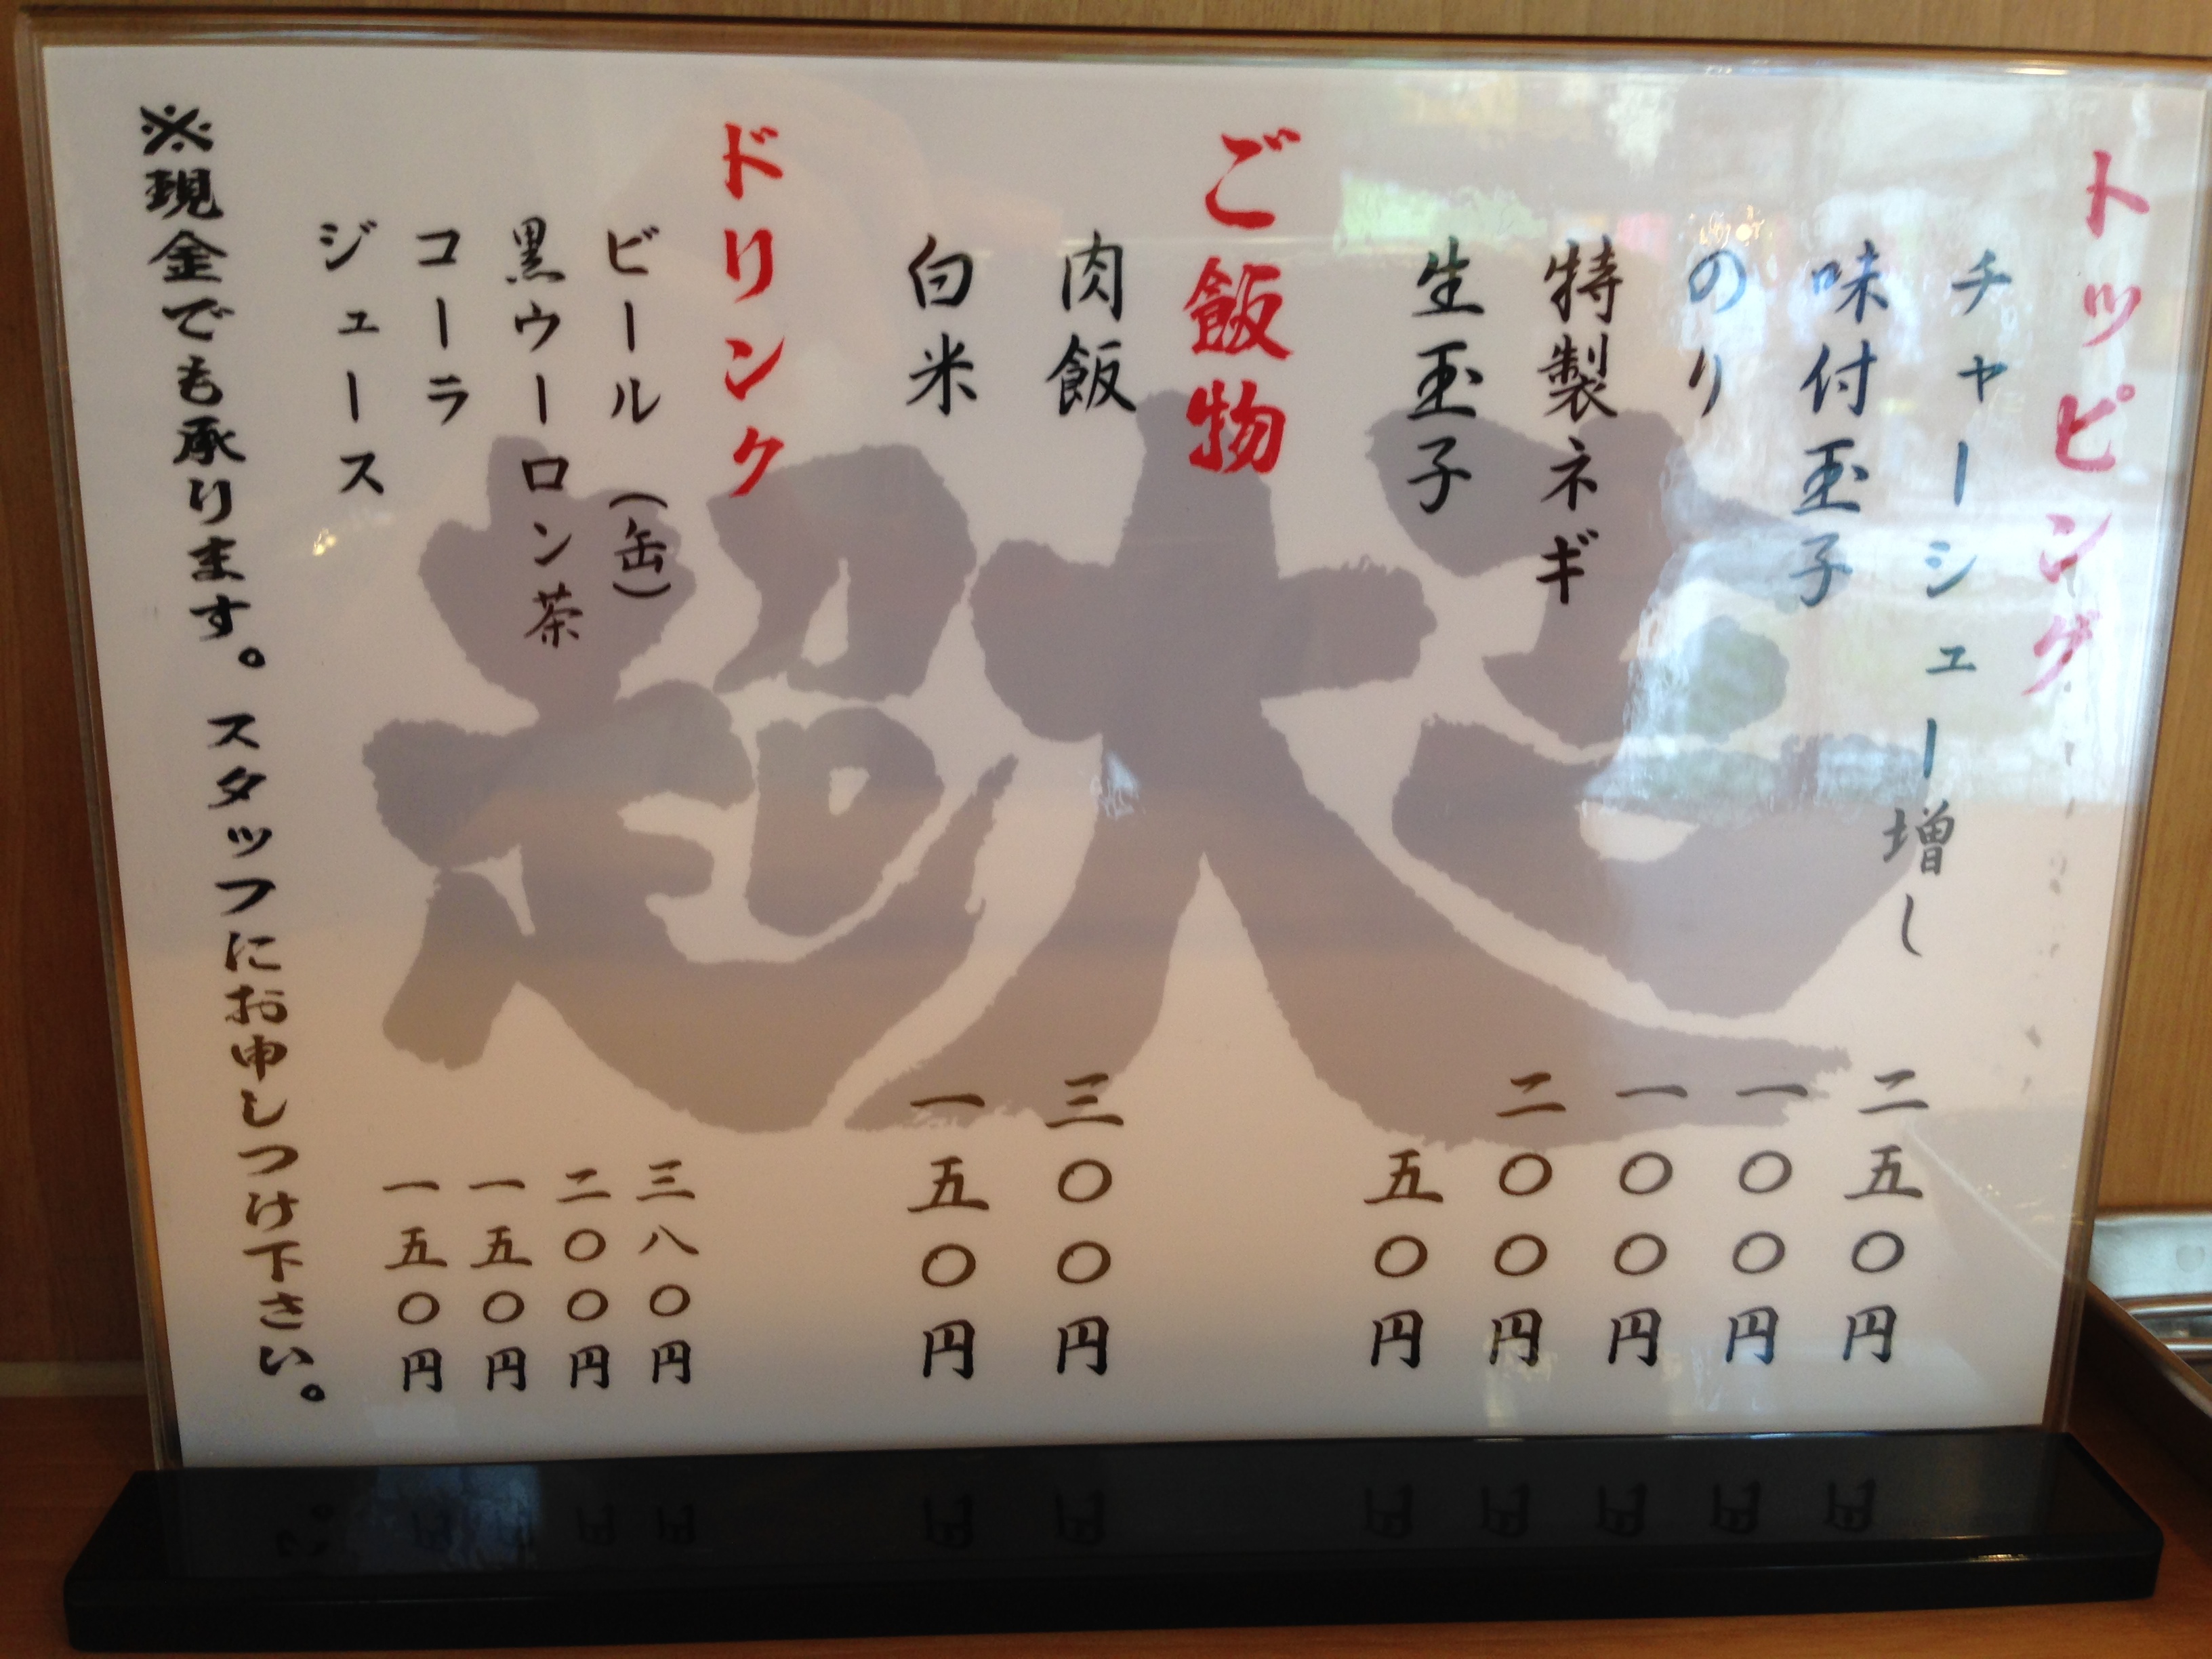 トッピング
チャーシュー増し 二五〇円
味付玉子 一〇〇円
のり 一〇〇円
特製ネギ 二〇〇円
生玉子 五〇円
ご飯物
肉飯 三〇〇円
白米 一五〇円
ドリンク
ビール(缶) 三八〇円
黒ウーロン茶 二〇〇円
コーラ 一五〇円
ジュース 一五〇円
※現金でも承ります。スタッフにお申しつけ下さい。